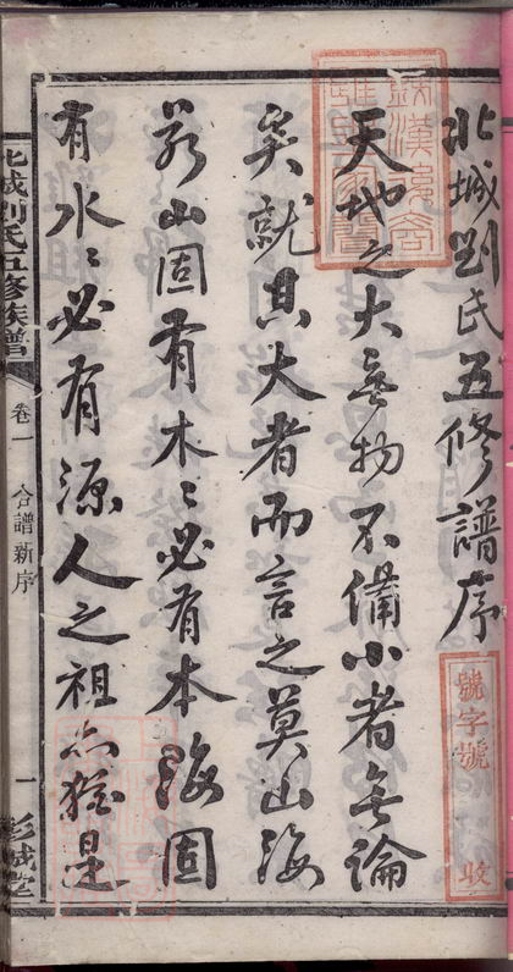 北城劉氏五修譜序
天地之大無物不備小者無論
矣就其大者而言之莫山海
若山固有木〻必有本海固
有水〻必有源人之祖亦猶是
北城劉氏五修族譜
卷一
合譜新序
一
彭城堂
號字號
收